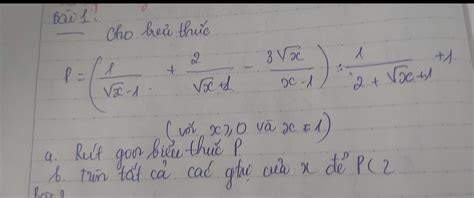 Bài 1.
Cho biểu thức
P = (1/(√x - 1) + 2/(√x + 1) - 3√x/(x - 1)) : 1/(2 + √x + 1) + 1
(với x ≥ 0 và x ≠ 1)
a. Rút gọn biểu thức P
b. Tìm tất cả các giá trị của x để P < 2